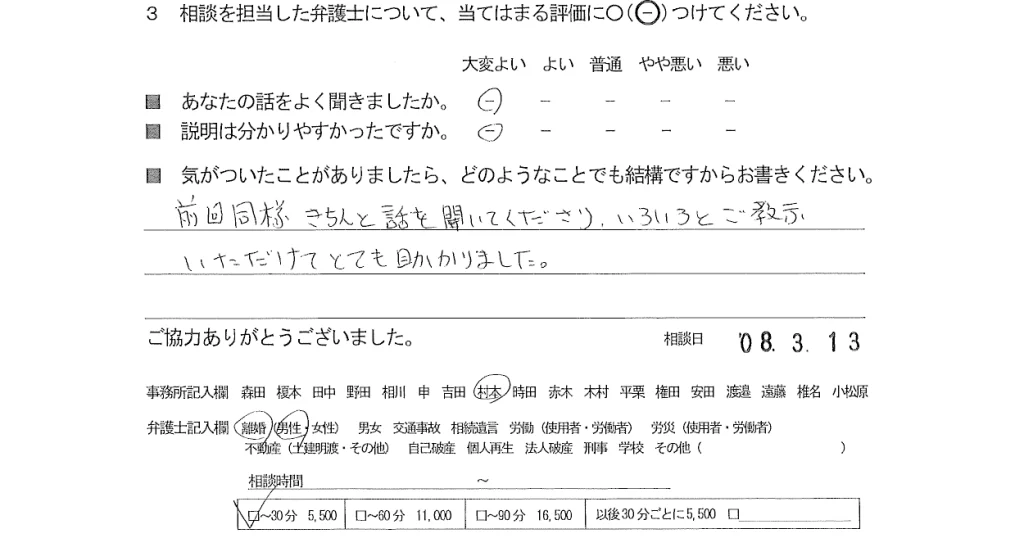 3 相談を担当した弁護士について、当てはまる評価に○(⊖)つけてください。
大変よい よい 普通 やや悪い 悪い
■ あなたの話をよく聞きましたか。 − − − − −
■ 説明は分かりやすかったですか。 − − − − −
■ 気がついたことがありましたら、どのようなことでも結構ですからお書きください。
前回同様 きちんと話を聞いてくださり、いろいろとご教示
いただけてとても助かりました。
ご協力ありがとうございました。 相談日 '08. 3. 13
事務所記入欄 森田 榎本 田中 野田 相川 申 吉田 村本 時田 赤木 木村 平栗 権田 安田 渡邉 遠藤 椎名 小松原
弁護士記入欄 離婚(男性・女性) 男女 交通事故 相続遺言 労働(使用者・労働者) 労災(使用者・労働者)
不動産(土建明渡・その他) 自己破産 個人再生 法人破産 刑事 学校 その他( )
相談時間 ~
□~30分 5,500 □~60分 11,000 □~90分 16,500 以後30分ごとに5,500 □